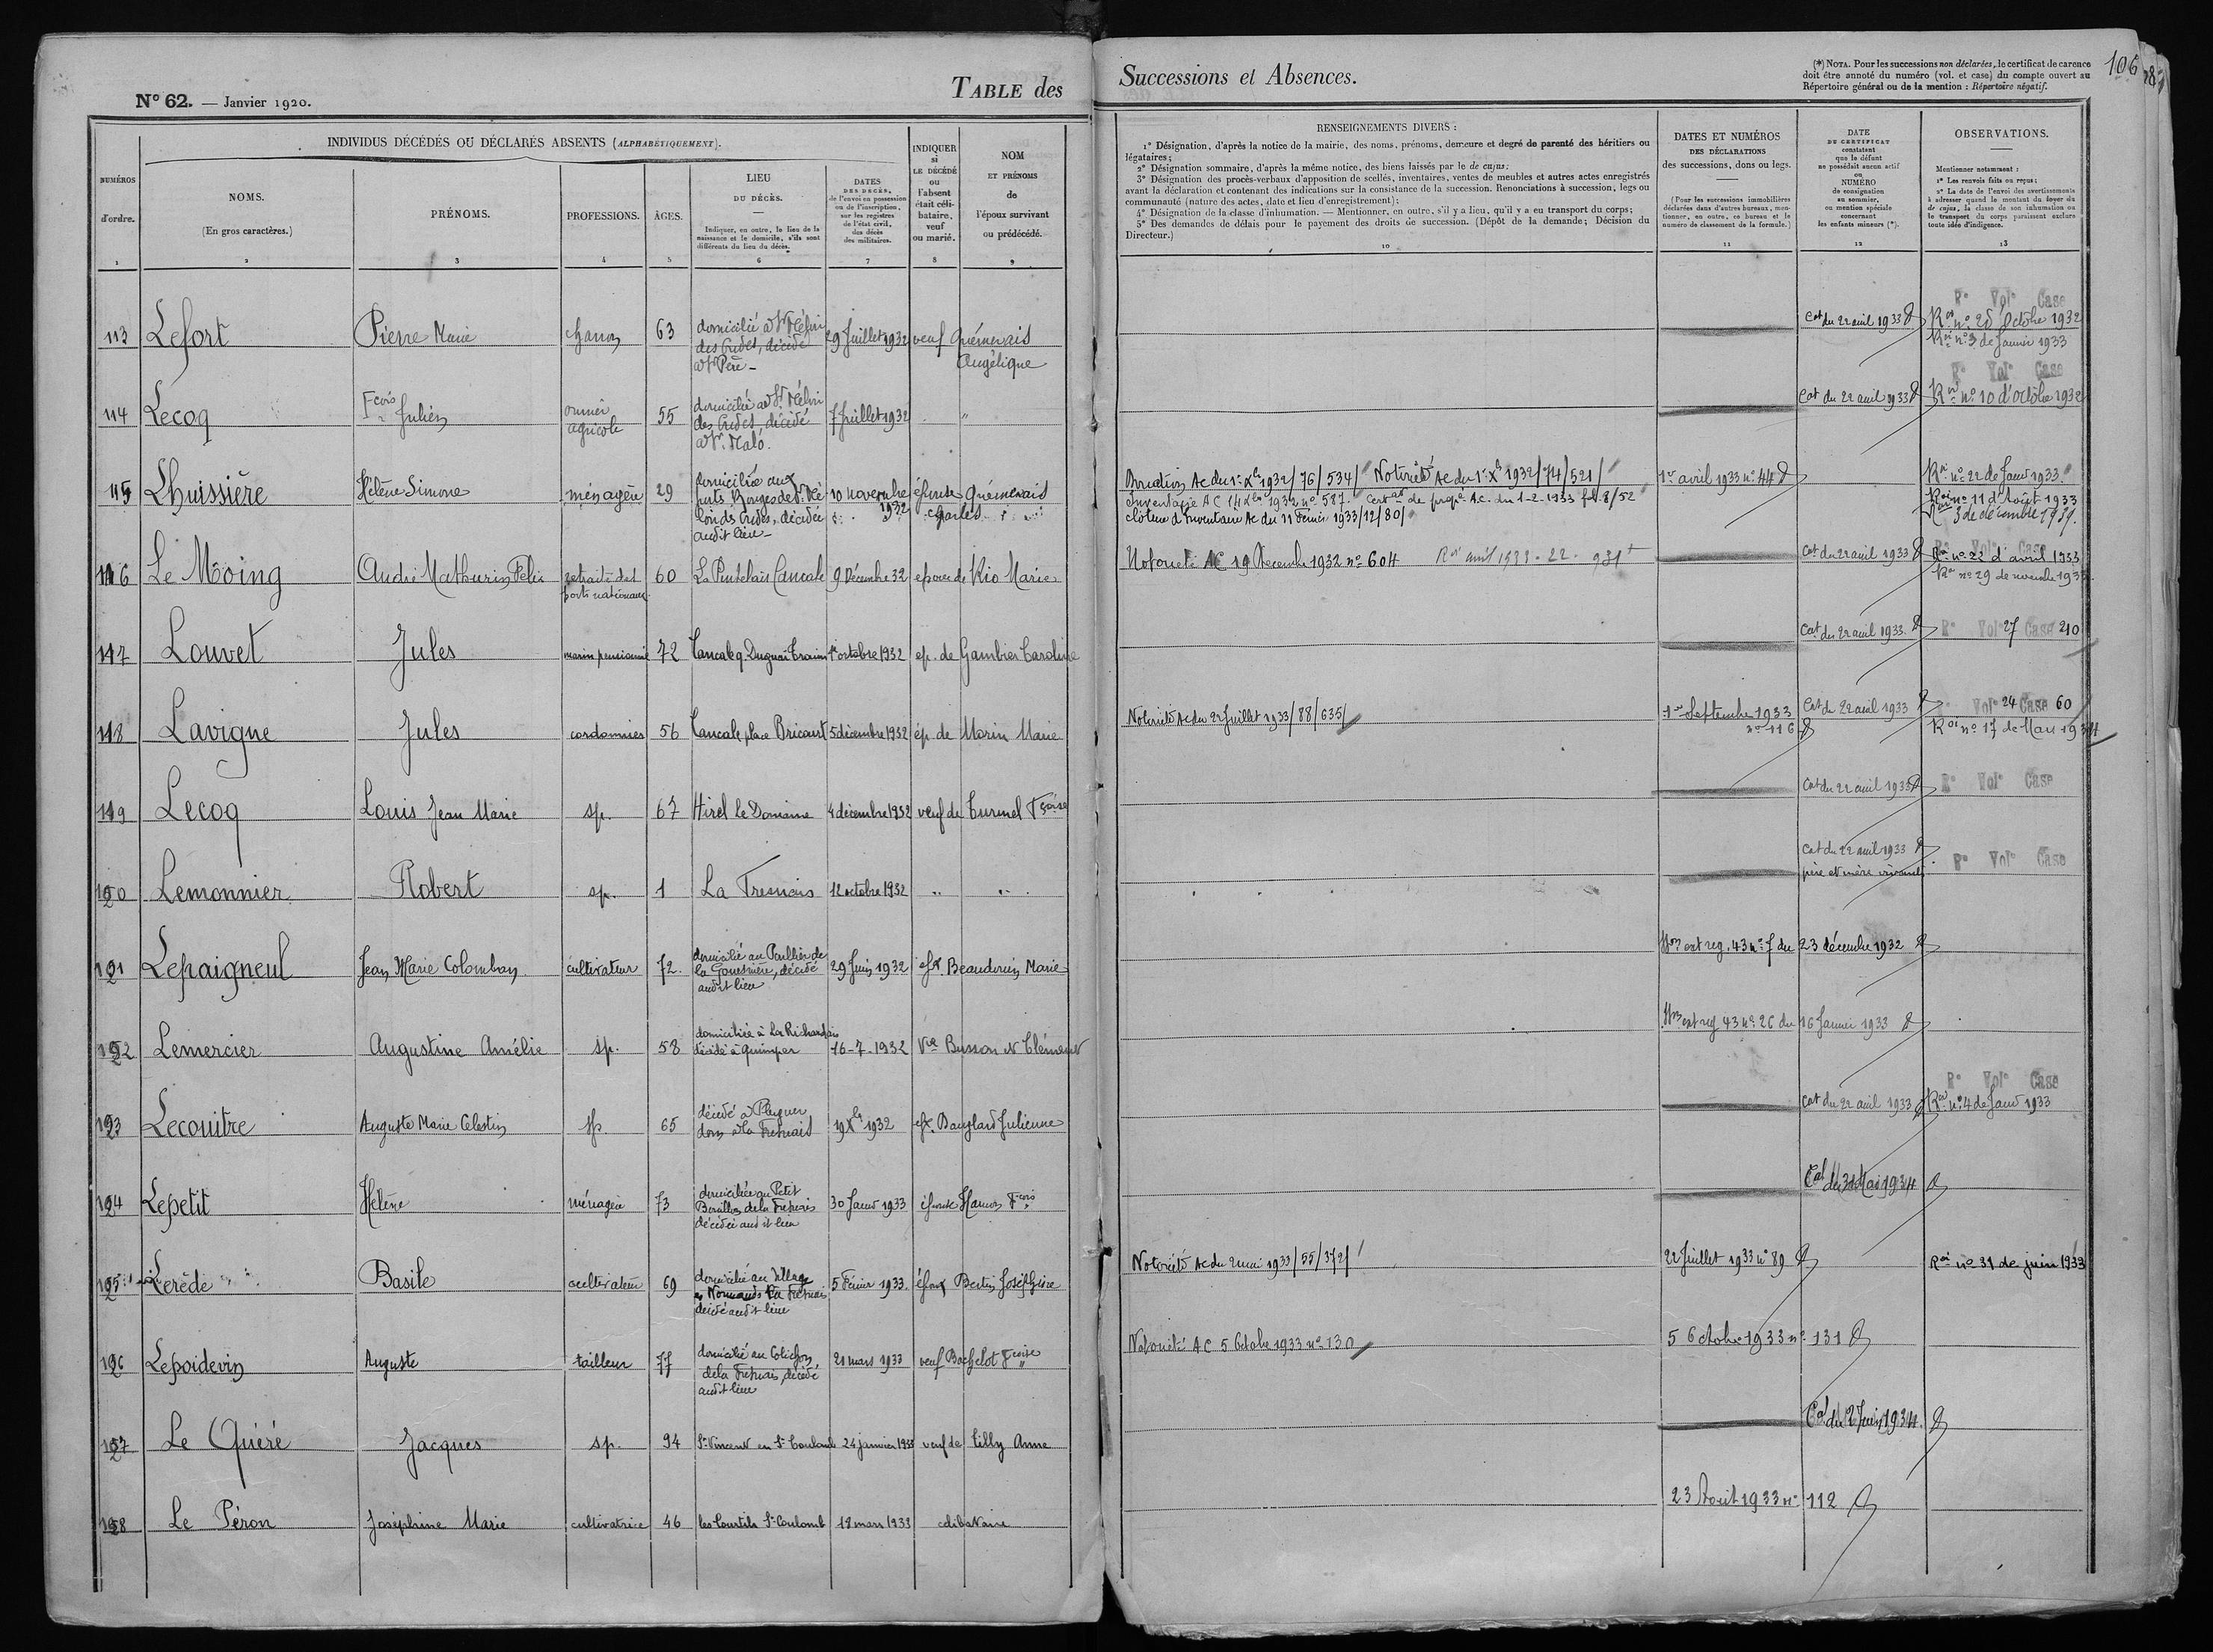 N° 62. — Janvier 1920.
TABLE des
Successions et Absences.
(*) NOTA. Pour les successions non déclarées, le certificat de carence
doit être annoté du numéro (vol. et case) du compte ouvert au
Répertoire général ou de la mention : Répertoire négatif.
106
NUMÉROS
d'ordre.
1
INDIVIDUS DÉCÉDÉS OU DÉCLARÉS ABSENTS (ALPHABÉTIQUEMENT).
NOMS.
(En gros caractères.)
2
PRÉNOMS.
3
PROFESSIONS.
4
ÂGES.
5
LIEU
DU DÉCÈS.
Indiquer, en outre, le lieu de la
naissance et le domicile, s'ils sont
différents du lieu du décès.
6
DATES
DES DÉCÈS,
de l'envoi en possession
ou de l'inscription,
sur les registres
de l'état civil,
des décès
des militaires.
7
INDIQUER
si
LE DÉCÉDÉ
ou
l'absent
était céli-
bataire,
veuf
ou marié.
8
NOM
ET PRÉNOMS
de
l'époux survivant
ou prédécédé.
9
RENSEIGNEMENTS DIVERS :
1° Désignation, d'après la notice de la mairie, des noms, prénoms, demeure et degré de parenté des héritiers ou
légataires;
2° Désignation sommaire, d'après la même notice, des biens laissés par le de cujus;
3° Désignation des procès-verbaux d'apposition de scellés, inventaires, ventes de meubles et autres actes enregistrés
avant la déclaration et contenant des indications sur la consistance de la succession. Renonciations à succession, legs ou
communauté (nature des actes, date et lieu d'enregistrement);
4° Désignation de la classe d'inhumation. — Mentionner, en outre, s'il y a lieu, qu'il y a eu transport du corps;
5° Des demandes de délais pour le payement des droits de succession. (Dépôt de la demande; Décision du
Directeur.)
10
DATES ET NUMÉROS
DES DÉCLARATIONS
des successions, dons ou legs.
(Pour les successions immobilières
déclarées dans d'autres bureaux, men-
tionner, en outre, ce bureau et le
numéro de classement de la formule.)
11
DATE
DU CERTIFICAT
constatant
que le défunt
ne possédait aucun actif
ou
NUMÉRO
de consignation
au sommier,
ou mention spéciale
concernant
les enfants mineurs (*).
12
OBSERVATIONS.
Mentionner notamment :
1° Les renvois faits ou reçus;
2° La date de l'envoi des avertissements
à adresser quand le montant du loyer du
de cujus, la classe de son inhumation ou
le transport du corps paraissent exclure
toute idée d'indigence.
13
113 Lefort Pierre Marie charron 63 domicilié à St Méloir
des Ondes, décédé
à St Père - 29 Juillet 1932 veuf Quémerais
Angélique
Cat du 22 avril 1933
R° Vol° Case
Roi n° 25 Octobre 1932
Roi n° 3 de Janvier 1933
114 Lecoq Fcois Julien ouvrier
agricole 55 domicilié à St Méloir
des Ondes, décédé
à St Malo. 7 Juillet 1932 "
Cat du 22 avril 1933
R° Vol° Case
Roi n° 10 d'octobre 1932
115 Lhuissière Hélène Simone ménagère 29 domiciliée aux
décédée
audit lieu - 10 novembre
1932 épouse Quémerais
Charles
Donation Ac du 1er Xbre 1932/76/534/ Notoriété Ac du 1er Xbre 1932/74/521/
Inventaire AC 14 Xbre 1932 n° 587. Certat de propé A.C. du 1-2-1933 fol. 8/52
clôture d'Inventaire Ac du 11 Février 1933/12/80/
1er avril 1933 n° 44
Roi n° 22 de Janv 1933.
Roi n° 11 d'Août 1933
3 de décembre 1939.
116 Le Moing André Mathurin Félix retraité des
ports nationaux 60 La Pentelais Cancale 9 Décembre 32 époux de Rio Marie
Notoriété AC 19 Décembre 1932 n° 604 Roi avril 1933 - 22 - 931
Cat du 22 avril 1933
Roi n° 22 d'avril 1933
Roi n° 29 de novembre 193
117 Louvet Jules marin pensionné 72 Cancale q. Duguai Trouin 1er octobre 1932 ep. de Gambier Caroline
Cat du 22 avril 1933
R° Vol° 27 Case 210
118 Lavigne Jules cordonnier 56 Cancale place Bricourt 5 décembre 1932 ép. de Morin Marie
Notoriété Ac du 22 Juillet 1933/88/635/
1er Septembre 1933
n° 116
Cat du 22 avril 1933
Vol° 24 Case 60
Roi n° 17 de Mars 1934
119 Lecoq Louis Jean Marie sp. 67 Hirel Le Domaine 4 décembre 1932 veuf de Turmel Fçoise
Cat du 22 avril 1933
R° Vol° Case
120 Lemonnier Robert sp. 1 La Fresnais 12 octobre 1932 " "
Cat du 22 avril 1933
père et mère vivants
R° Vol° Case
121 Lepaigneul Jean Marie Colomban cultivateur 72. domicilié au
la Gouesnière, décédé
audit lieu 29 Juin 1932 épx. Beaudouin Marie
ext reg. 43 n° 7 du 23 décembre 1932
122 Lemercier Augustine Amélie sp. 58 domiciliée à La Richardais
décédé à Quimper 16-7-1932 Vve Busson Clément
ext reg 43 n° 26 du 16 Janvier 1933
123 Lecouitre Auguste Marie Célestin sp 65 décédé à Plerguer
dom à la Fresnais 19 Xbre 1932 épx. Bauglard Julienne
Cat du 22 avril 1933
R° Vol° Case
Roi n° 4 de Janv 1933
124 Lepetit Hélène ménagère 73 domiciliée au Petit
de la Fresnais
décédée audit lieu 30 Janv 1933 épouse Hamon Fcois
Cat du 31 Mai 1934
125 Lerède Basile cultivateur 69 domicilié au village
es Normands La Fresnais
décédé audit lieu 5 Février 1933. époux Bertin Joséphine
Notoriété Ac du 2 mai 1933/55/372/
22 Juillet 1933 n° 89
Roi n° 31 de juin 1933
126 Lepoidevin Auguste tailleur 77 domicilié au
de la Fresnais, décédé
audit lieu 21 mars 1933 veuf Bachelot Fcoise
Notoriété AC 5 Octobre 1933 n° 130
5 Octobre 1933 n° 131
127 Le Quéré Jacques sp. 94 St Vincent en St Coulomb 24 janvier 1933 veuf de Lilly Anne
Cat du 2 Juin 1934.
128 Le Péron Joséphine Marie cultivatrice 46 les Courtils St Coulomb 18 mars 1933 célibataire
23 Août 1933 n° 112